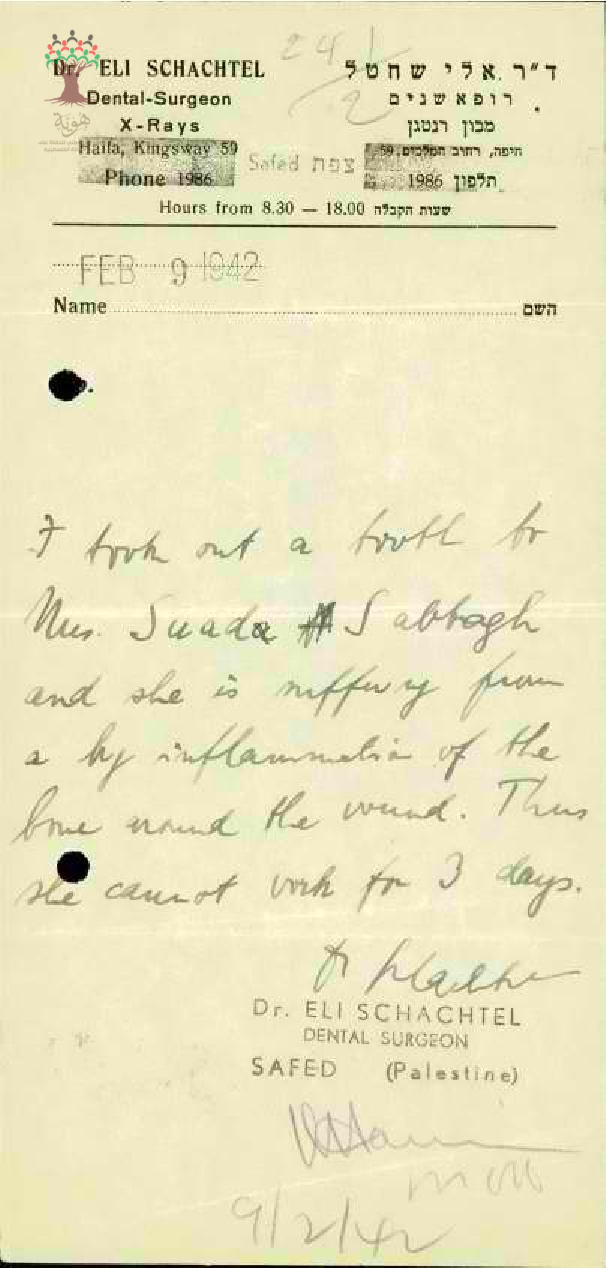 24/2
Dr. ELI SCHACHTEL
Dental-Surgeon
X-Rays
Haifa, Kingsway 59
Phone 1986
ד״ר אלי שחטל
רופא שנים
מכון רנטגן
חיפה, רחוב המלכים 59
תלפון 1986
Safed צפת
هوية
Hours from 8.30 — 18.00 שעות הקבלה
FEB 9 1942
Name השם
I took out a tooth to
Mrs. Suada Sabbagh
and she is suffering from
a big inflammation of the
bone around the wound. Thus
she cannot work for 3 days.
Dr. ELI SCHACHTEL
DENTAL SURGEON
SAFED (Palestine)
MOH
9/2/42